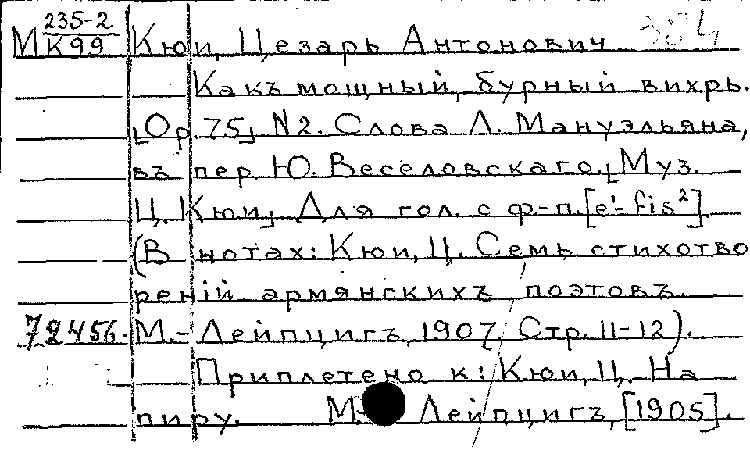 М 235-2
К99 Кюи, Цезарь Антонович
Какъ мощный, бурный вихрь.
[Ор. 75] N2. Слова Л. Мануэльяна,
въ пер. Ю. Веселовскаго. [Муз.
Ц. Кюи]. Для гол. с ф-п. [e¹-fis²]
(В нотах: Кюи, Ц. Семь стихотво
реній армянскихъ поэтовъ.
72456. М.-Лейпцигъ, 1907, Стр. 11-12).
Приплетено к: Кюи, Ц. На
пиру. М.- Лейпцигъ, [1905].